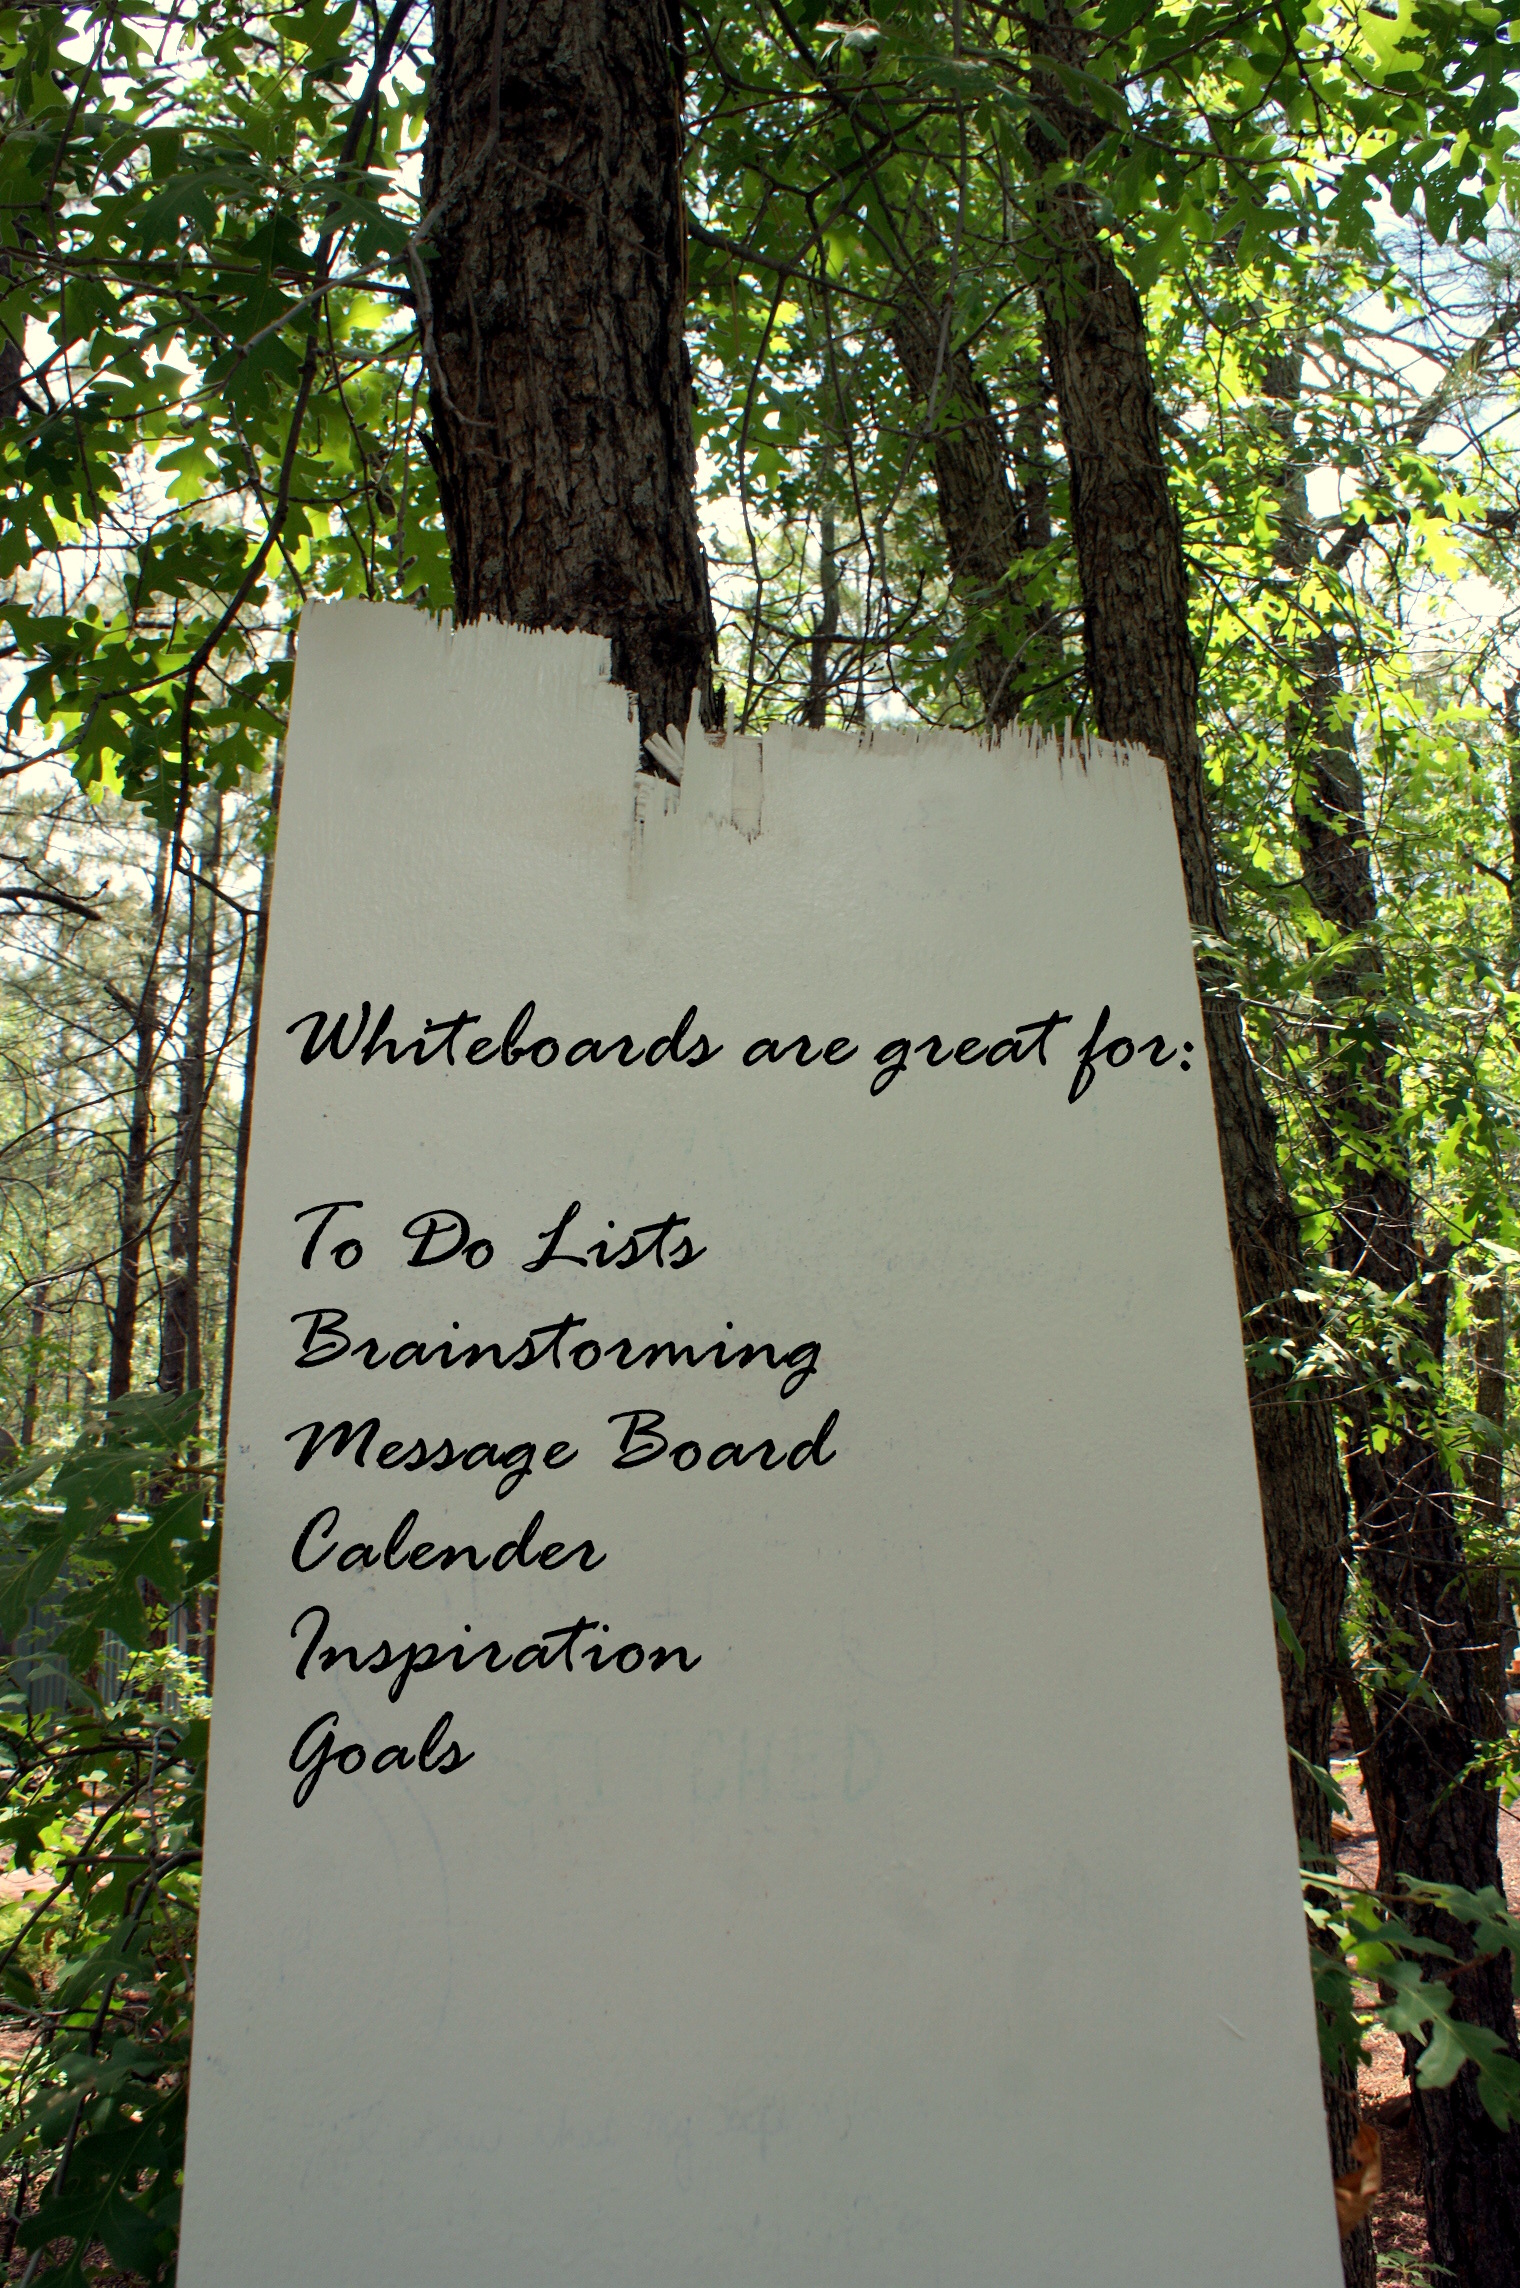 Whiteboards are great for:
To Do Lists
Brainstorming
Message Board
Calender
Inspiration
Goals